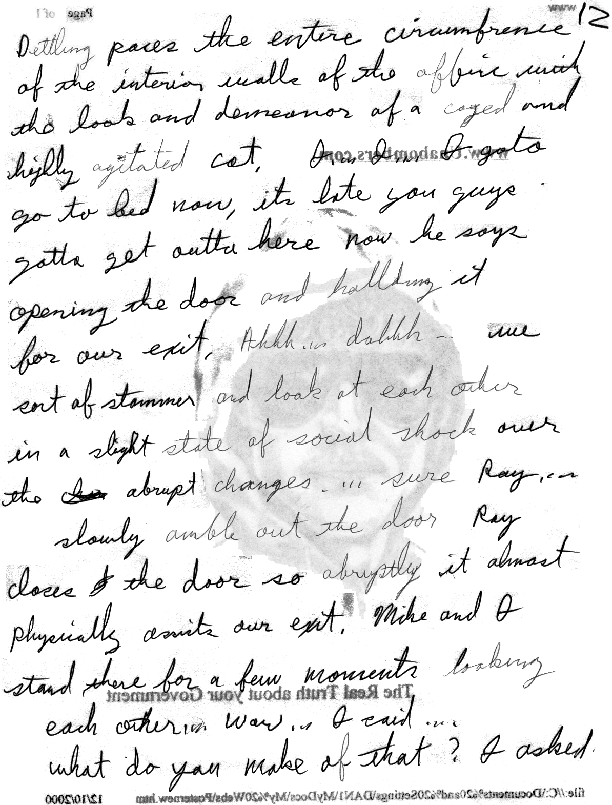 12
Dettling paces the entire circumfrence
of the interior walls of the office with
the look and demeanor of a caged and
highly agitated cat, I... I... I gota
go to bed now, its late you guys
gotta get outta here now he says
opening the door and hallding it
for our exit, Ahhh... dahhh... we
sort of stammer and look at each other
in a slight state of social shock over
the abrupt changes.... sure Ray...
slowly amble out the door Ray
closes the door so abruptly it almost
physically asists our exit. Mike and I
stand there for a few moments looking
each other... Wow... I said...
what do you make of that? I asked.
Page 1 of 1
www
The Real Truth about your Government
file://C:\Documents%20and%20Settings\DAN1\MyDocs\My%20Webs\Posternew.htm
12/10/2000